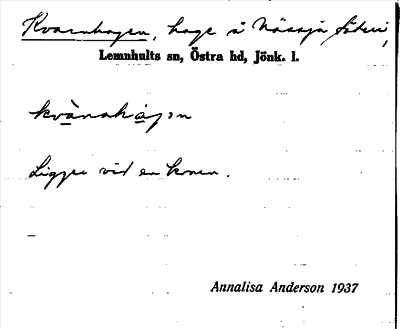 Kvarnhagen, hage å Nässja säteri,
Lemnhults sn, Östra hd, Jönk. l.
kvànshàgən
Ligger vid en kvarn.
Annalisa Anderson 1937